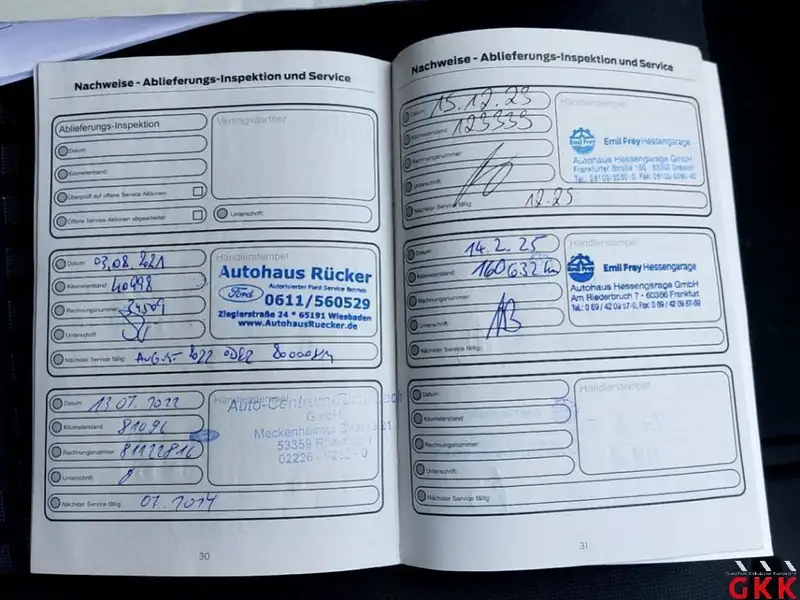 Nachweise - Ablieferungs-Inspektion und Service
Ablieferungs-Inspektion
Datum:
Kilometerstand:
Überprüft auf offene Service Aktionen:
Offene Service Aktionen abgearbeitet:
Vertragspartner
Unterschrift:
Datum: 03.08.2021
Kilometerstand: 40998
Rechnungsnummer:
Unterschrift:
Nächster Service fällig: August 2022 oder 80000km
Händlerstempel
Autohaus Rücker
Ford
Autorisierter Ford Service Betrieb
0611/560529
Zieglerstraße 24 * 65191 Wiesbaden
www.AutohausRuecker.de
Datum: 13.07.2022
Kilometerstand: 81096
Rechnungsnummer: 81122816
Unterschrift:
Nächster Service fällig: 07.2024
Händlerstempel
Auto-Centrum
GmbH
Meckenheimer
53359
02226
30
Nachweise - Ablieferungs-Inspektion und Service
Datum: 15.12.23
Kilometerstand: 123333
Rechnungsnummer:
Unterschrift:
Nächster Service fällig: 12.25
Händlerstempel
Emil Frey Hessengarage
Autohaus Hessengarage GmbH
Frankfurter Straße
Datum: 14.2.25
Kilometerstand: 160632 km
Rechnungsnummer:
Unterschrift:
Nächster Service fällig:
Händlerstempel
Emil Frey Hessengarage
Autohaus Hessengarage GmbH
Am Riederbruch 7 · 60386 Frankfurt
Datum:
Kilometerstand:
Rechnungsnummer:
Unterschrift:
Nächster Service fällig:
Händlerstempel
31
GKK